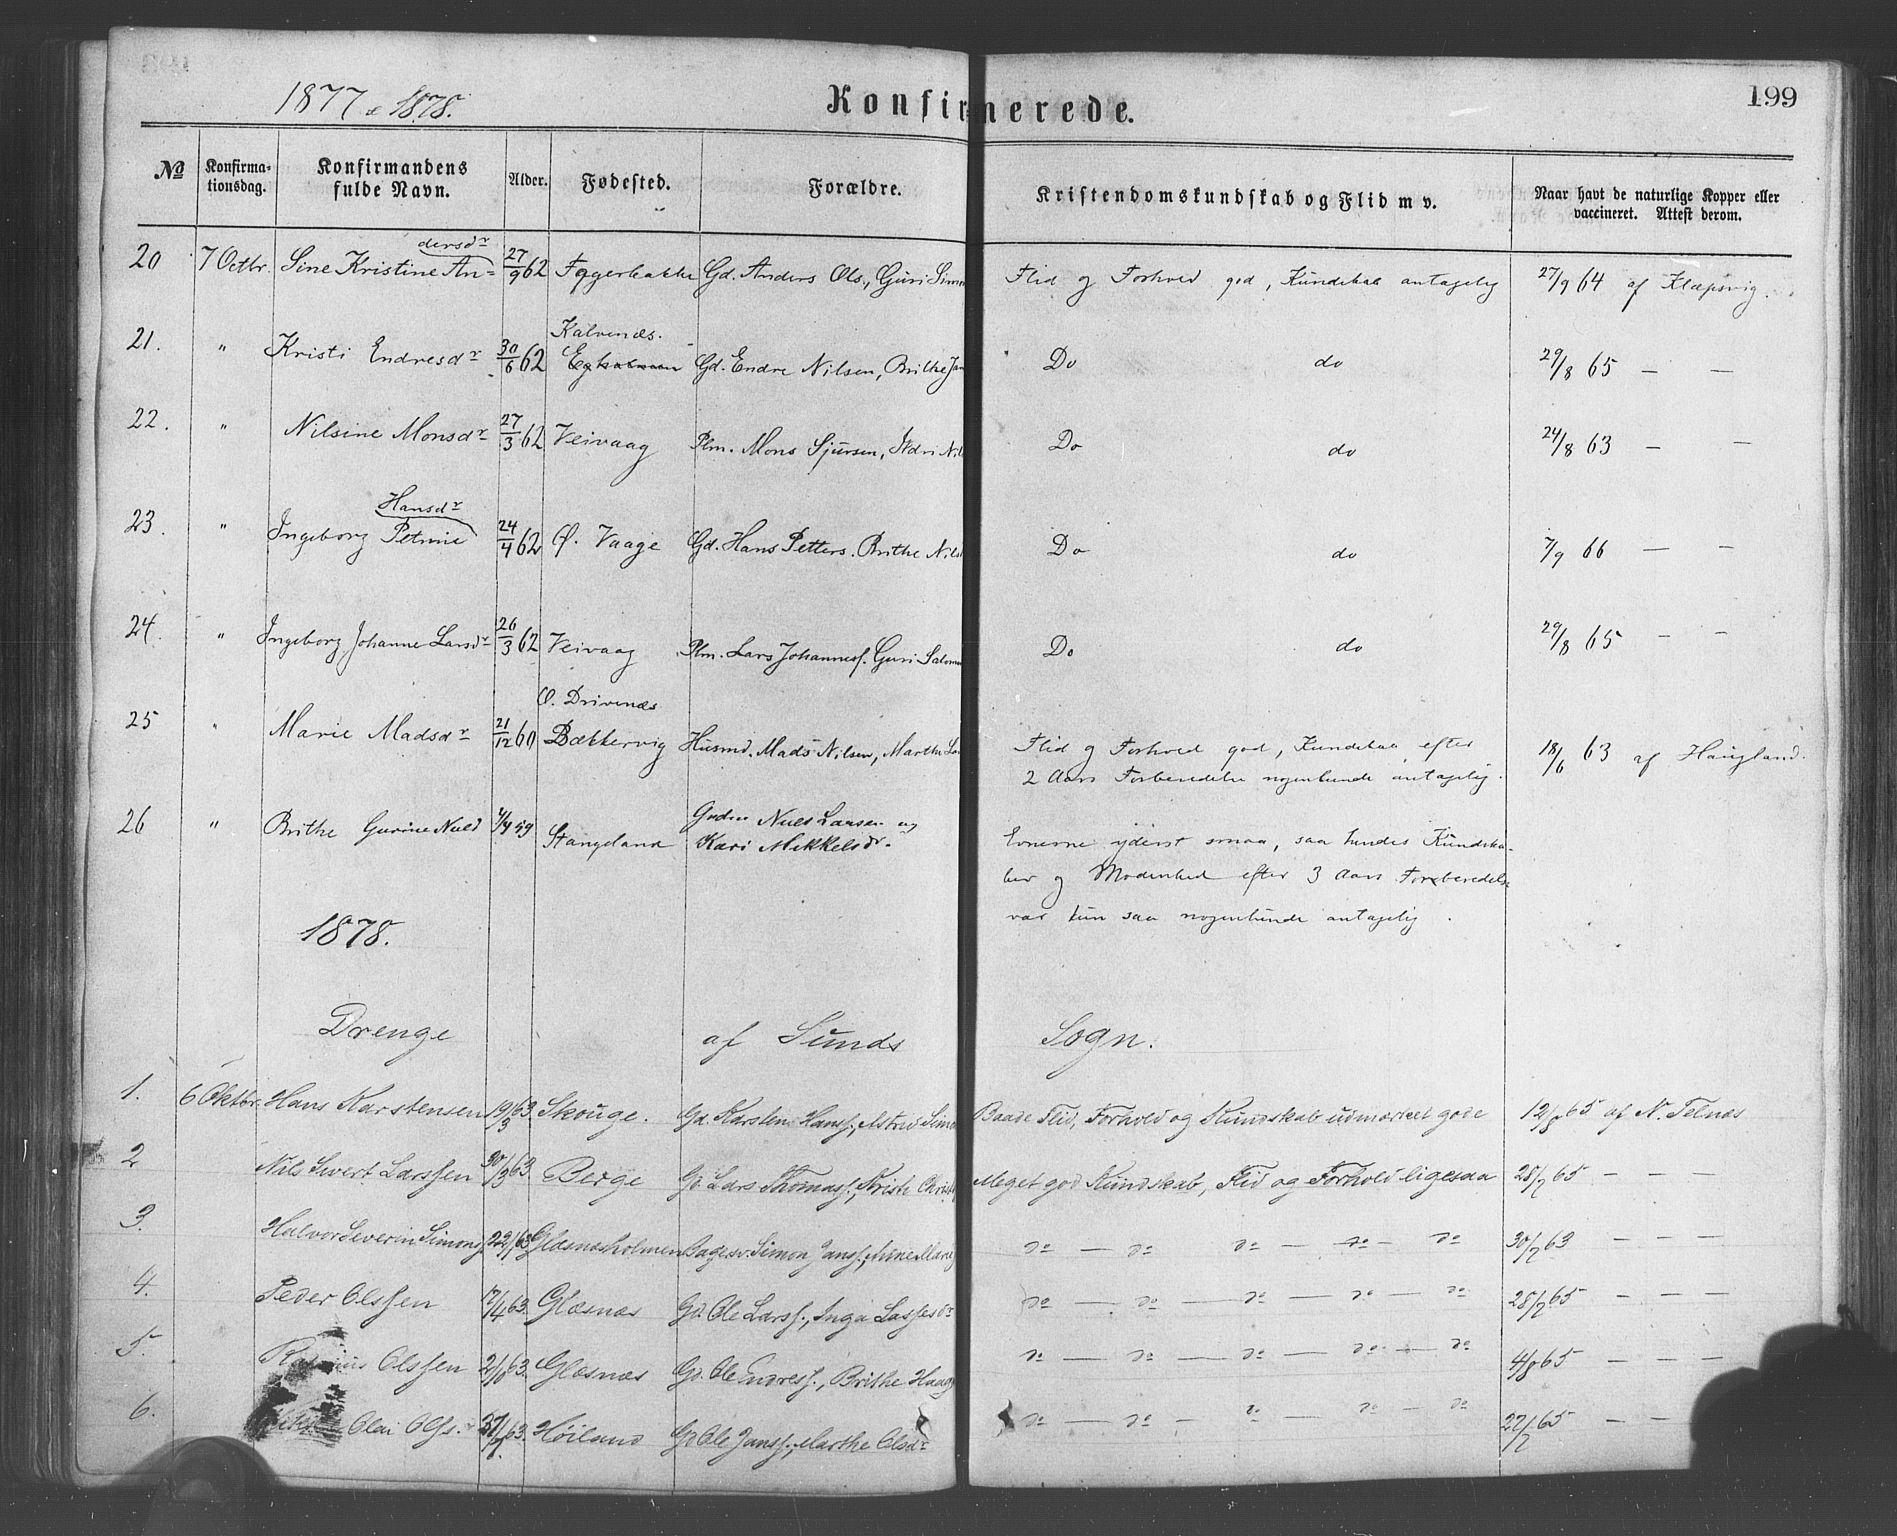 1877 & 1878.
Konfirmerede.
199
No
Konfirma-
tionsdag.
Konfirmandens
fulde Navn.
Alder.
Fødested.
Forældre.
Kristendomskundskab og Flid m v.
Naar havt de naturlige Kopper eller
vaccineret. Attest derom.
dersdr
20 7 Octbr. Sine Kristine An= 27/9 62 Eggerbakke Gd. Anders Ols., Guri Simo Flid og Forhold god, Kundskab antagelig 27/9 64 af Klepsvig.
Kalvenæs.
21. " Kristi Endresdr 30/6 62 Gd. Endre Nilsen, Brithe Jan Do do 29/8 65 — —
22. " Nilsine Monsdr 27/3 62 Veivaag Plm. Mons Sjursen, Nil Do do 24/8 63 — —
Hansdr
23. " Ingeborg Petrine 24/4 62 Ø. Vaage Gd. Hans Petters. Brithe Nils Do do 7/9 66 — —
24. " Ingeborg Johanne Larsdr 26/3 62 Veivaag Plm. Lars Johannesf. Guri Salom Do do 29/8 65 — —
Ø. Drivenæs
25 " Marie Madsdr 21/12 60 Bækkervig Husmd. Mads Nilsen, Marthe La Flid og Forhold god, Kundskab efter
2 Aars Forberedelse nogenlunde antagelig. 18/6 63 af Haugland.
26 " Brithe Gurine Nilsd 4/4 59 Stangeland Grdm Niels Larsen og
Kari Mikkelsdr. Evnerne yderst smaa, saa hendes Kundska-
ber og Modenhed efter 3 Aars Forberedelse
var kun saa nogenlunde antagelig.
1878.
Drenge af Sunds Sogn.
1. 6 Oktbr. Hans Karstensen 19/3 63. Skouge. Gd. Karsten Hansf., Astrid Simo Baade Flid, Forhold og Kundskab udmærket gode 12/8 65 af N. Telnæs
2 Nils Sivert Larssen 30/3 63. Berge Gd. Lars Thomasf., Kristi Christ Meget god Kundskab, Flid og Forhold ligesaa 28/7 65 — — —
3. Halvor Severin Simonsf. 63 Glæsnæsholmen Simon Jansf., Anne Marie do — do do — do — do 30/7 63 — — —
4. Peder Olssen 12/4 63. Glæsnæs Gd. Ole Larsf., Inga Lassesdr do — do — do — do — do 28/7 65 — — —
5. Olssen 63. Glæsnæs Gd. Ole Endresf., Brithe Haag do — do — do — do — do 4/8 65 — — —
6. Olai Olss. 63. Høiland Gd Ole Jansf., Marthe Olsdr do — do — do — do — do 27/7 65 — —